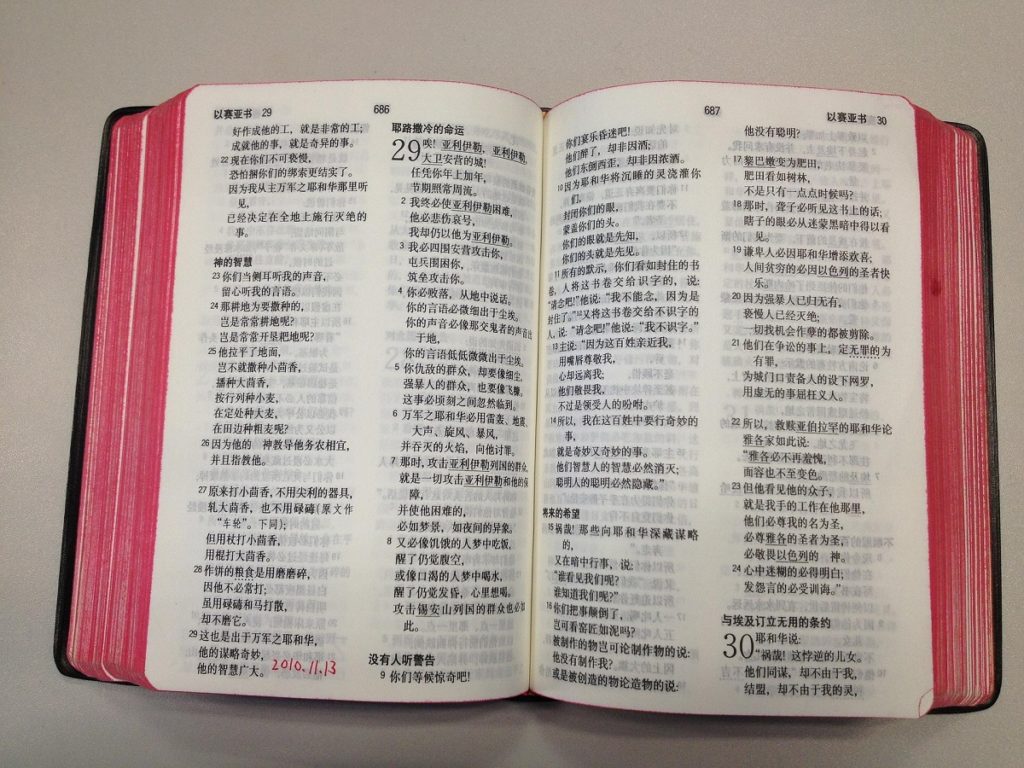 以赛亚书 29
686
好作成他的工，就是非常的工；
成就他的事，就是奇异的事。
22 现在你们不可亵慢，
恐怕捆你们的绑索更结实了。
因为我从主万军之耶和华那里听
见，
已经决定在全地上施行灭绝的
事。
神的智慧
23 你们当侧耳听我的声音，
留心听我的言语。
24 那耕地为要撒种的，
岂是常常耕地呢？
岂是常常开垦耙地呢？
25 他拉平了地面，
岂不就撒种小茴香，
播种大茴香，
按行列种小麦，
在定处种大麦，
在田边种粗麦呢？
26 因为他的 神教导他务农相宜，
并且指教他。
27 原来打小茴香，不用尖利的器具，
轧大茴香，也不用碌碡（原文作
“车轮”。下同）；
但用杖打小茴香，
用棍打大茴香。
28 作饼的粮食是用磨磨碎，
因他不必常打；
虽用碌碡和马打散，
却不磨它。
29 这也是出于万军之耶和华，
他的谋略奇妙，
他的智慧广大。 2010.11.13
耶路撒冷的命运
29 唉！亚利伊勒，亚利伊勒，
大卫安营的城！
任凭你年上加年，
节期照常周流。
2 我终必使亚利伊勒困难，
他必悲伤哀号，
我却仍以他为亚利伊勒。
3 我必四围安营攻击你，
屯兵围困你，
筑垒攻击你。
4 你必败落，从地中说话，
你的言语必微细出于尘埃。
你的声音必像那交鬼者的声音出
于地，
你的言语低低微微出于尘埃。
5 你仇敌的群众，却要像细尘，
强暴人的群众，也要像飞糠。
这事必顷刻之间忽然临到。
6 万军之耶和华必用雷轰、地震、
大声、旋风、暴风，
并吞灭的火焰，向他讨罪。
7 那时，攻击亚利伊勒列国的群众，
就是一切攻击亚利伊勒和他的保
障，
并使他困难的，
必如梦景，如夜间的异象。
8 又必像饥饿的人梦中吃饭，
醒了仍觉腹空，
或像口渴的人梦中喝水，
醒了仍觉发昏，心里想喝。
攻击锡安山列国的群众也必如
此。
没有人听警告
9 你们等候惊奇吧！
687
以赛亚书 30
你们宴乐昏迷吧！
他们醉了，却非因酒；
他们东倒西歪，却非因浓酒。
10 因为耶和华将沉睡的灵浇灌你
们，
封闭你们的眼，
蒙盖你们的头。
你们的眼就是先知，
你们的头就是先见。
11 所有的默示，你们看如封住的书
卷，人将这书卷交给识字的，说：
“请念吧！”他说：“我不能念，因为是
封住了。” 12 又将这书卷交给不识字的
人，说：“请念吧！”他说：“我不识字。”
13 主说：“因为这百姓亲近我，
用嘴唇尊敬我，
心却远离我；
他们敬畏我，
不过是领受人的吩咐。
14 所以，我在这百姓中要行奇妙的
事，
就是奇妙又奇妙的事。
他们智慧人的智慧必然消灭；
聪明人的聪明必然隐藏。”
将来的希望
15 祸哉！那些向耶和华深藏谋略
的，
又在暗中行事，说：
“谁看见我们呢？
谁知道我们呢？”
16 你们把事颠倒了，
岂可看窑匠如泥吗？
被制作的物岂可论制作物的说：
他没有制作我？
或是被创造的物论造物的说：
他没有聪明？
17 黎巴嫩变为肥田，
肥田看如树林，
不是只有一点点时候吗？
18 那时，聋子必听见这书上的话；
瞎子的眼必从迷蒙黑暗中得以看
见。
19 谦卑人必因耶和华增添欢喜；
人间贫穷的必因以色列的圣者快
乐。
20 因为强暴人已归无有，
亵慢人已经灭绝；
一切找机会作孽的都被剪除。
21 他们在争讼的事上，定无罪的为
有罪，
为城门口责备人的设下网罗，
用虚无的事屈枉义人。
22 所以，救赎亚伯拉罕的耶和华论
雅各家如此说：
“雅各必不再羞愧，
面容也不至变色。
23 但他看见他的众子，
就是我手的工作在他那里，
他们必尊我的名为圣，
必尊雅各的圣者为圣，
必敬畏以色列的 神。
24 心中迷糊的必得明白；
发怨言的必受训诲。”
与埃及订立无用的条约
30 耶和华说：
“祸哉！这悖逆的儿女。
他们同谋，却不由于我，
结盟，却不由于我的灵，